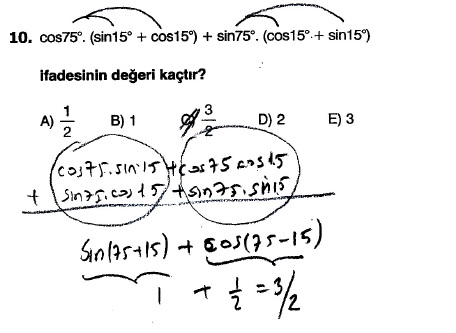 10. cos75°. (sin15° + cos15°) + sin75°. (cos15° + sin15°)
ifadesinin değeri kaçtır?
A) 1/2 B) 1 C) 3/2 D) 2 E) 3
cos75.sin15 + cos75 cos15
+ sin75.cos15 + sin75.sin15
sin(75+15) + cos(75-15)
1 + 1/2 = 3/2